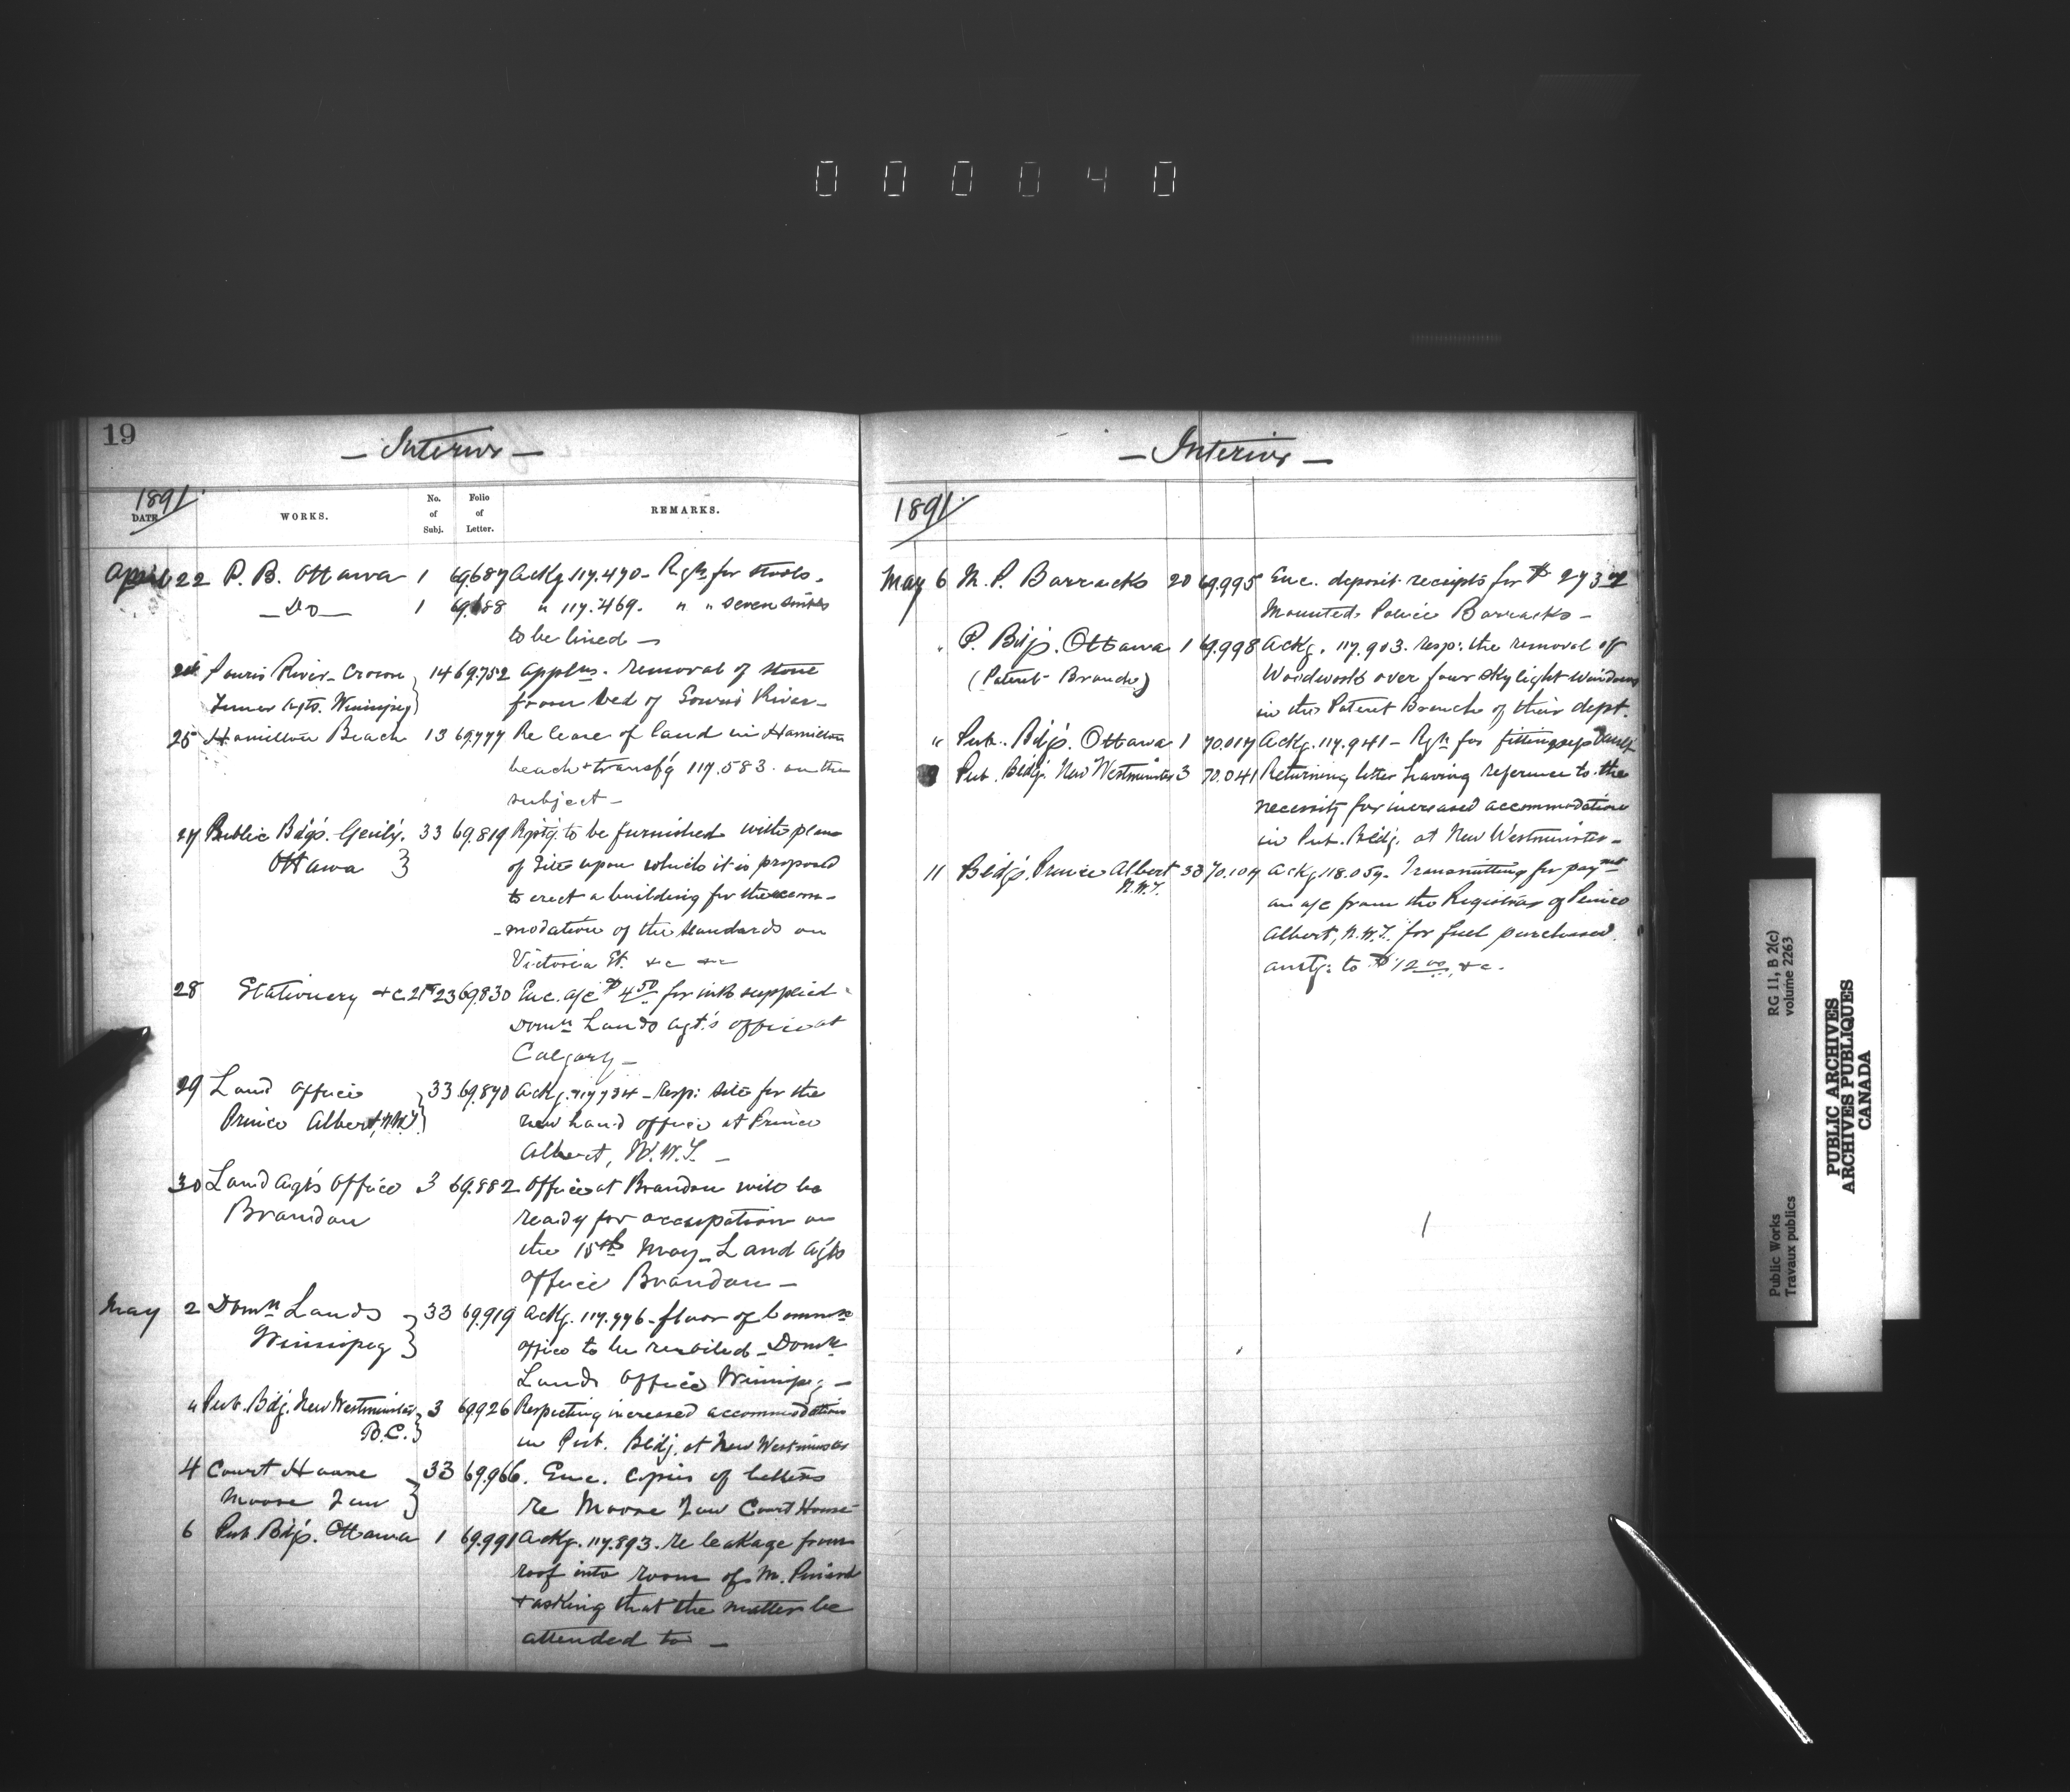 000040
19
— Interior —
1891
DATE WORKS. No. of Subj. Folio of Letter. REMARKS.
April 22 P. B. Ottawa 1 69.687 Ackg. 117.470 - Rqn for stools.
— Do — 1 69.688 " 117.469. " " seven sinks
to be lined —
Souris River - Crown 14 69.752 applns. removal of stone
Timber Agts. Winnipeg } from bed of Souris River —
25 Hamilton Beach 13 69.777 Re lease of land in Hamilton
beach + transfg 117.583. on the
subject —
27 Public Bdgs. Genly. 33 69.819 Rqstg. to be furnished with plan
Ottawa } of site upon which it is proposed
to erect a building for the accom-
-modation of the standards on
Victoria St. &c &c
28 Stationery &c. 23 69.830 Enc. a/c $4.50 for ink supplied
Domn Lands agt.'s office at
Calgary —
29 Land Office } 33 69.870 Ackg. 117.734 - resp: site for the
Prince Albert, N.W.T. } new Land office at Prince
Albert, N.W.T. —
30 Land Agts Office 3 69.882 Office at Brandon will be
Brandon ready for occupation on
the 15th May - Land Agts
Office Brandon —
May 2 Domn Lands } 33 69.919 Ackg. 117.776 - floor of Commrs
Winnipeg } office to be reoiled - Domn
Lands Office Winnipeg —
" Pub. Bdg. New Westminster } 3 69.926 Respecting increased accommodation
B.C. } in Pub. Bldg. at New Westminster
4 Court House } 33 69.966. Enc. copies of letters
Moose Jaw } re Moose Jaw Court House
6 Pub. Bdgs. Ottawa 1 69.991 Ackg. 117.893. re leakage from
roof into room of M.
+ asking that the matter be
attended to —
— Interior —
1891
May 6 M. P. Barracks 20 69.995 Enc. deposit receipts for $
Mounted Police Barracks —
" P. Bdgs. Ottawa 1 69.998 Ackg. 117.903. resp: the removal of
(Patent Branch) Woodwork over four skylight windows
in the Patent Branch of their dept.
" Pub. Bdgs. Ottawa 1 70.017 Ackg. 117.941 - Rqn for fitting up
Pub. Bldg. New Westminster 3 70.041 Returning letter having reference to the
necessity for increased accommodation
in Pub. Bldg. at New Westminster —
11 Bldgs. Prince Albert 33 70.107 Ackg. 118.059. Transmitting for paymt
N.W.T. an a/c from the Registrar of Prince
Albert, N.W.T. for fuel purchased
amtg: to $12.00, &c.
Public Works
Travaux publics
RG 11, B 2(c)
volume 2263
PUBLIC ARCHIVES
ARCHIVES PUBLIQUES
CANADA